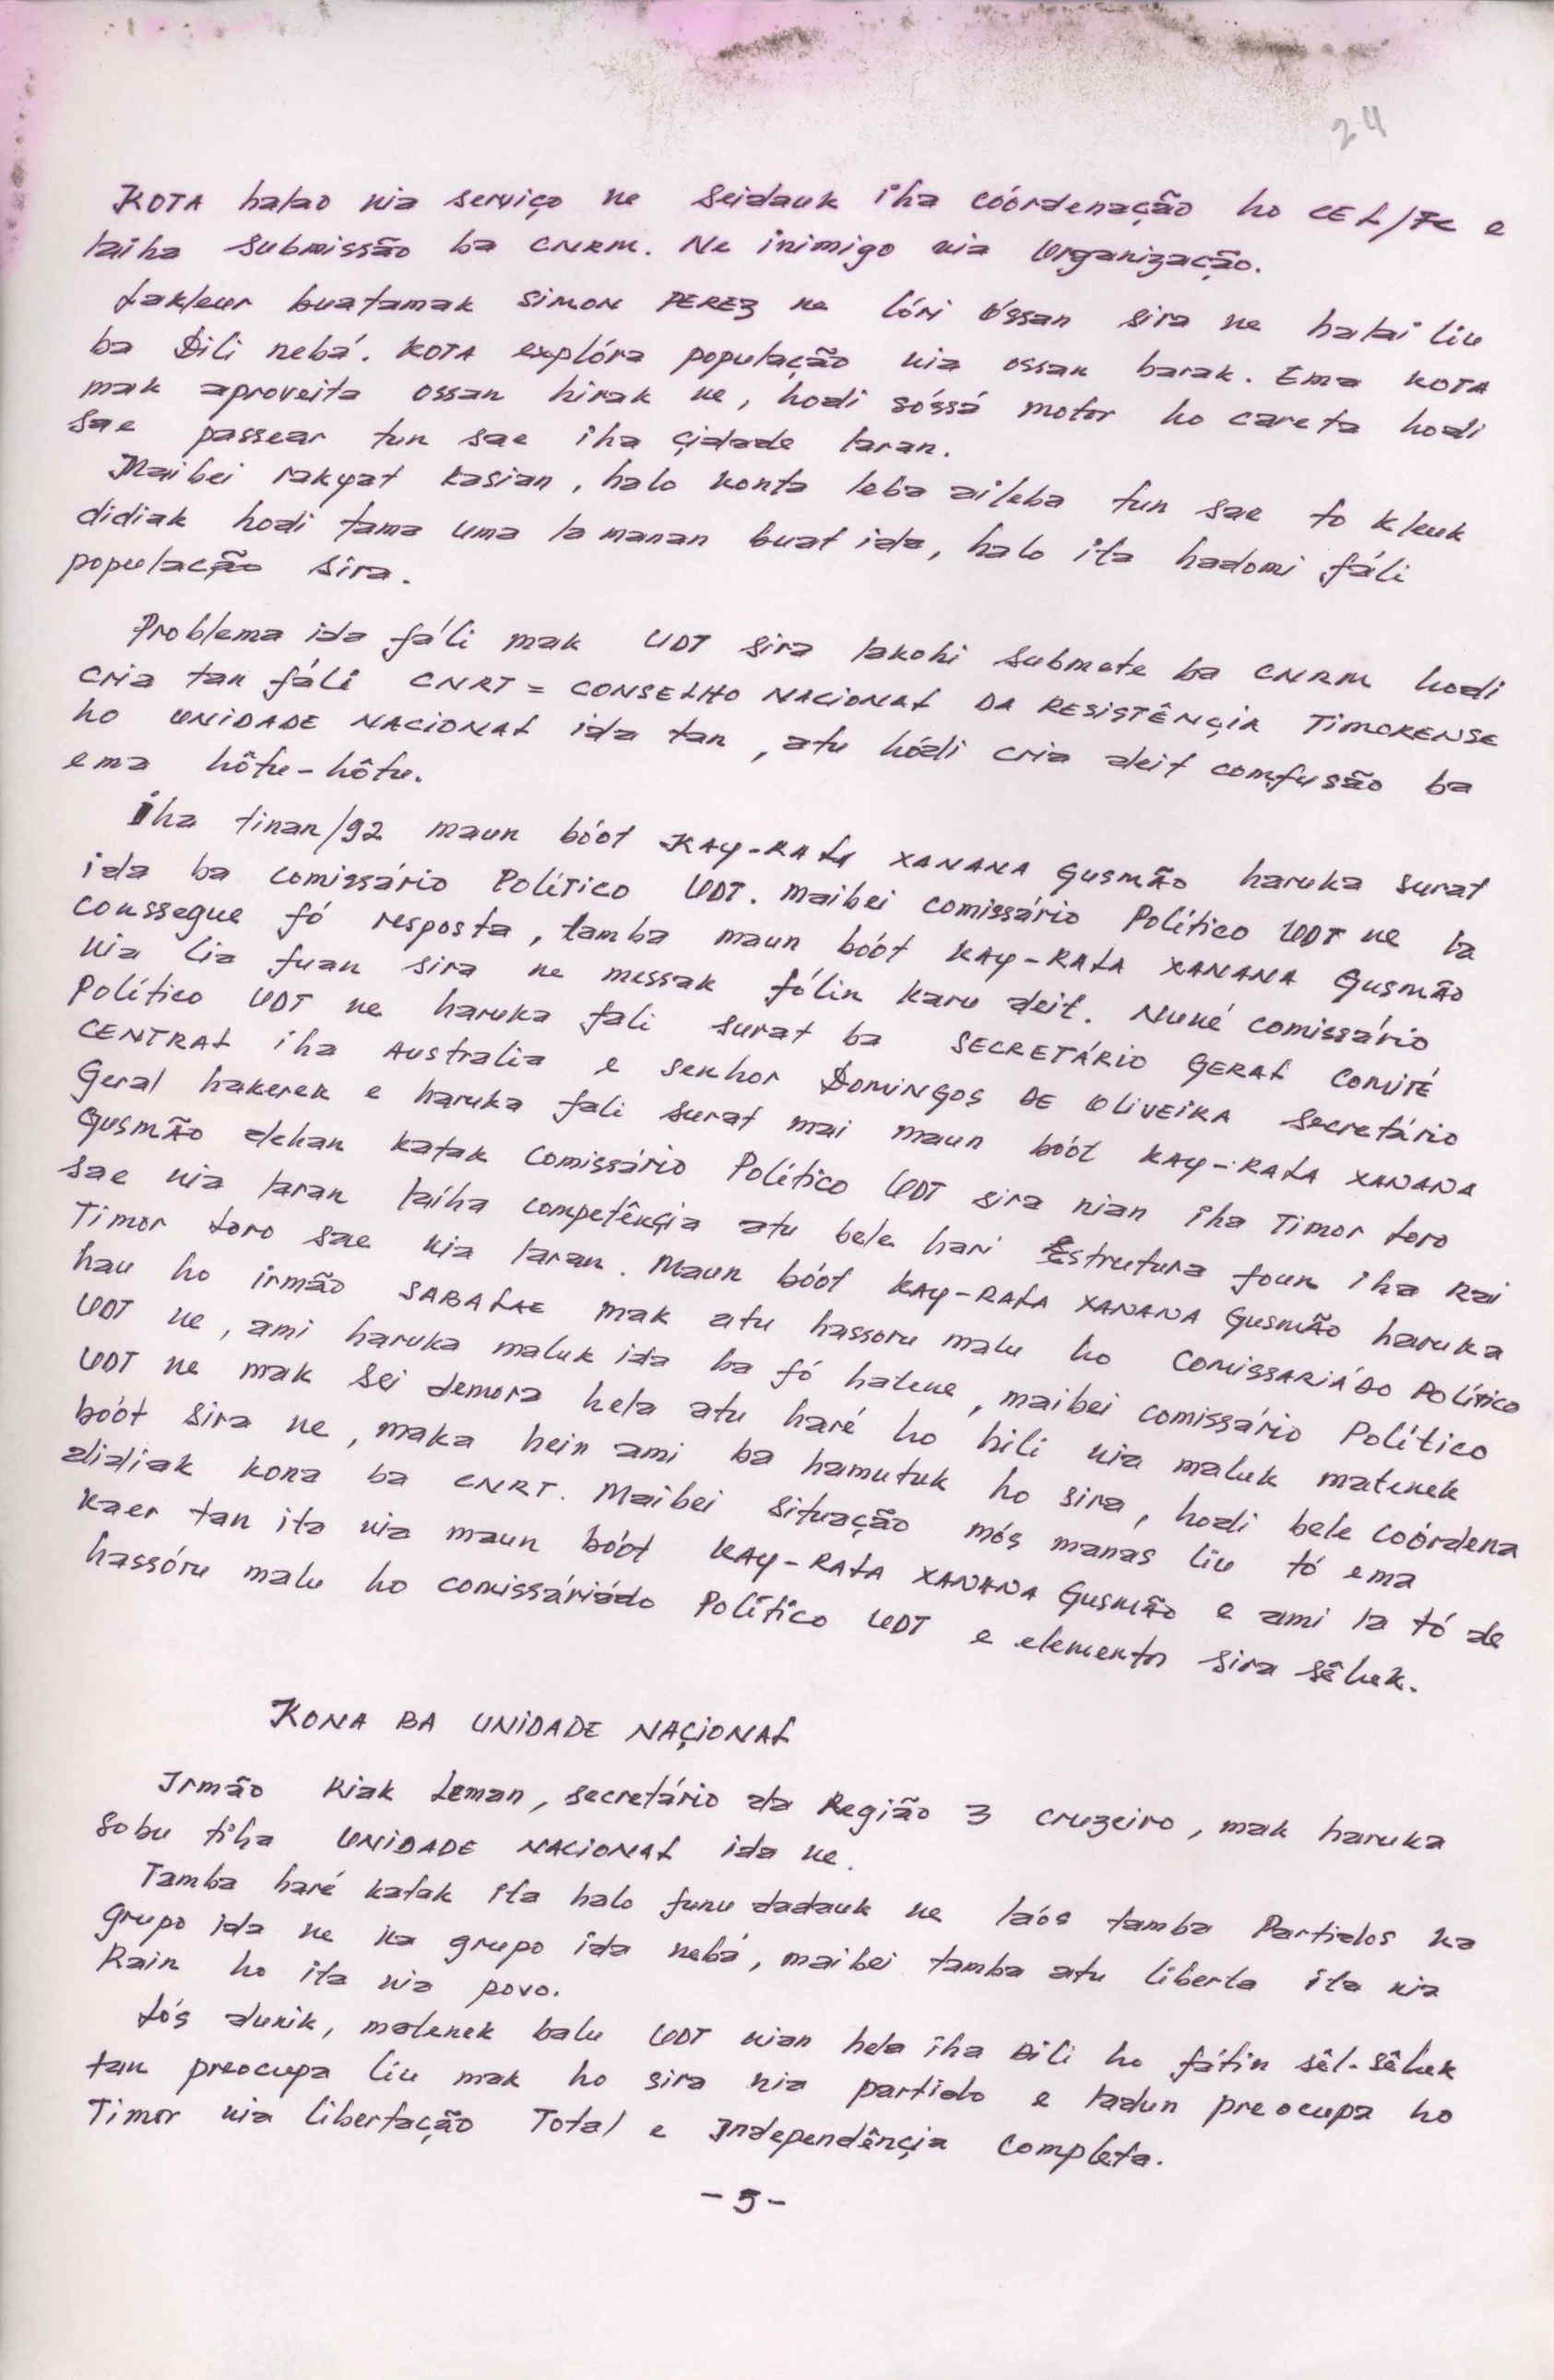 24
KOTA halao nia serviço ne seidauk iha coórdenação ho CEL/FC e
laiha submissão ba CNRM. Ne inimigo nia Organização.
Lakleur buatamak SIMON PEREZ ne lóri óssan sira ne halai liu
ba Dili nebá. KOTA explóra população nia ossan barak. Ema KOTA
mak aproveita ossan hirak ne, hodi sóssá motor ho careta hodi
sae passear tun sae iha çidade laran.
Maibei rakyat kasian, halo konta leba aileba tun sae to kleuk
didiak hodi tama uma la manan buat ida, halo ita hadomi fáli
população sira.
Problema ida fáli mak UDT sira lakohi submete ba CNRM hodi
cria tan fáli CNRT = CONSELHO NACIONAL DA RESISTÊNÇIA TIMORENSE
ho UNIDADE NACIONAL ida tan, atu hódi cria deit comfusão ba
ema hôtu-hôtu.
Iha tinan/92 maun bóot KAY-RALA XANANA GUSMÃO haruka surat
ida ba comissário Político UDT. Maibei comissário Político UDT ne la
conssegue fó resposta, tamba maun bóot KAY-RALA XANANA GUSMÃO
nia lia fuan sira ne messak fólin karu deit. Nuné comissário
Político UDT ne haruka fali surat ba SECRETÁRIO GERAL COMITÉ
CENTRAL iha Australia e senhor DOMINGOS DE OLIVEIRA Secretário
Geral hakerek e haruka fali surat mai maun bóot KAY-RALA XANANA
GUSMÃO dehan katak Comissário Político UDT sira nian iha Timor Loro
sae nia laran laiha competênçia atu bele hari Estrutura foun iha Rai
Timor Loro sae nia laran. Maun bóot KAY-RALA XANANA GUSMÃO haruka
hau ho irmão SABALAE mak atu hassoru malu ho COMISSARIÁDO POLÍTICO
UDT ne, ami haruka maluk ida ba fó hatene, maibei comissário Político
UDT ne mak sei demora hela atu haré ho hili nia maluk matenek
bóót sira ne, maka hein ami ba hamutuk ho sira, hodi bele coórdena
didiak kona ba CNRT. Maibei situação mós manas liu tó ema
kaer tan ita nia maun bóót KAY-RALA XANANA GUSMÃO e ami la tó de
hassóru malu ho comissáriádo Político UDT e elementos sira sêluk.
KONA BA UNIDADE NAÇIONAL
Irmão Riak Leman, secretário da Região 3 cruzeiro, mak haruka
sobu tiha UNIDADE NACIONAL ida ne.
Tamba haré katak ita halo funu dadauk ne laós tamba Partidos ka
grupo ida ne ka grupo ida nebá, maibei tamba atu liberta ita nia
Rain ho ita nia povo.
Lós dunik, matenek balu UDT nian hela iha Dili ho fátin sêl-sêluk
tan preocupa liu mak ho sira nia partido e ladun preocupa ho
Timor nia libertação Total e Independênçia Completa.
- 5 -